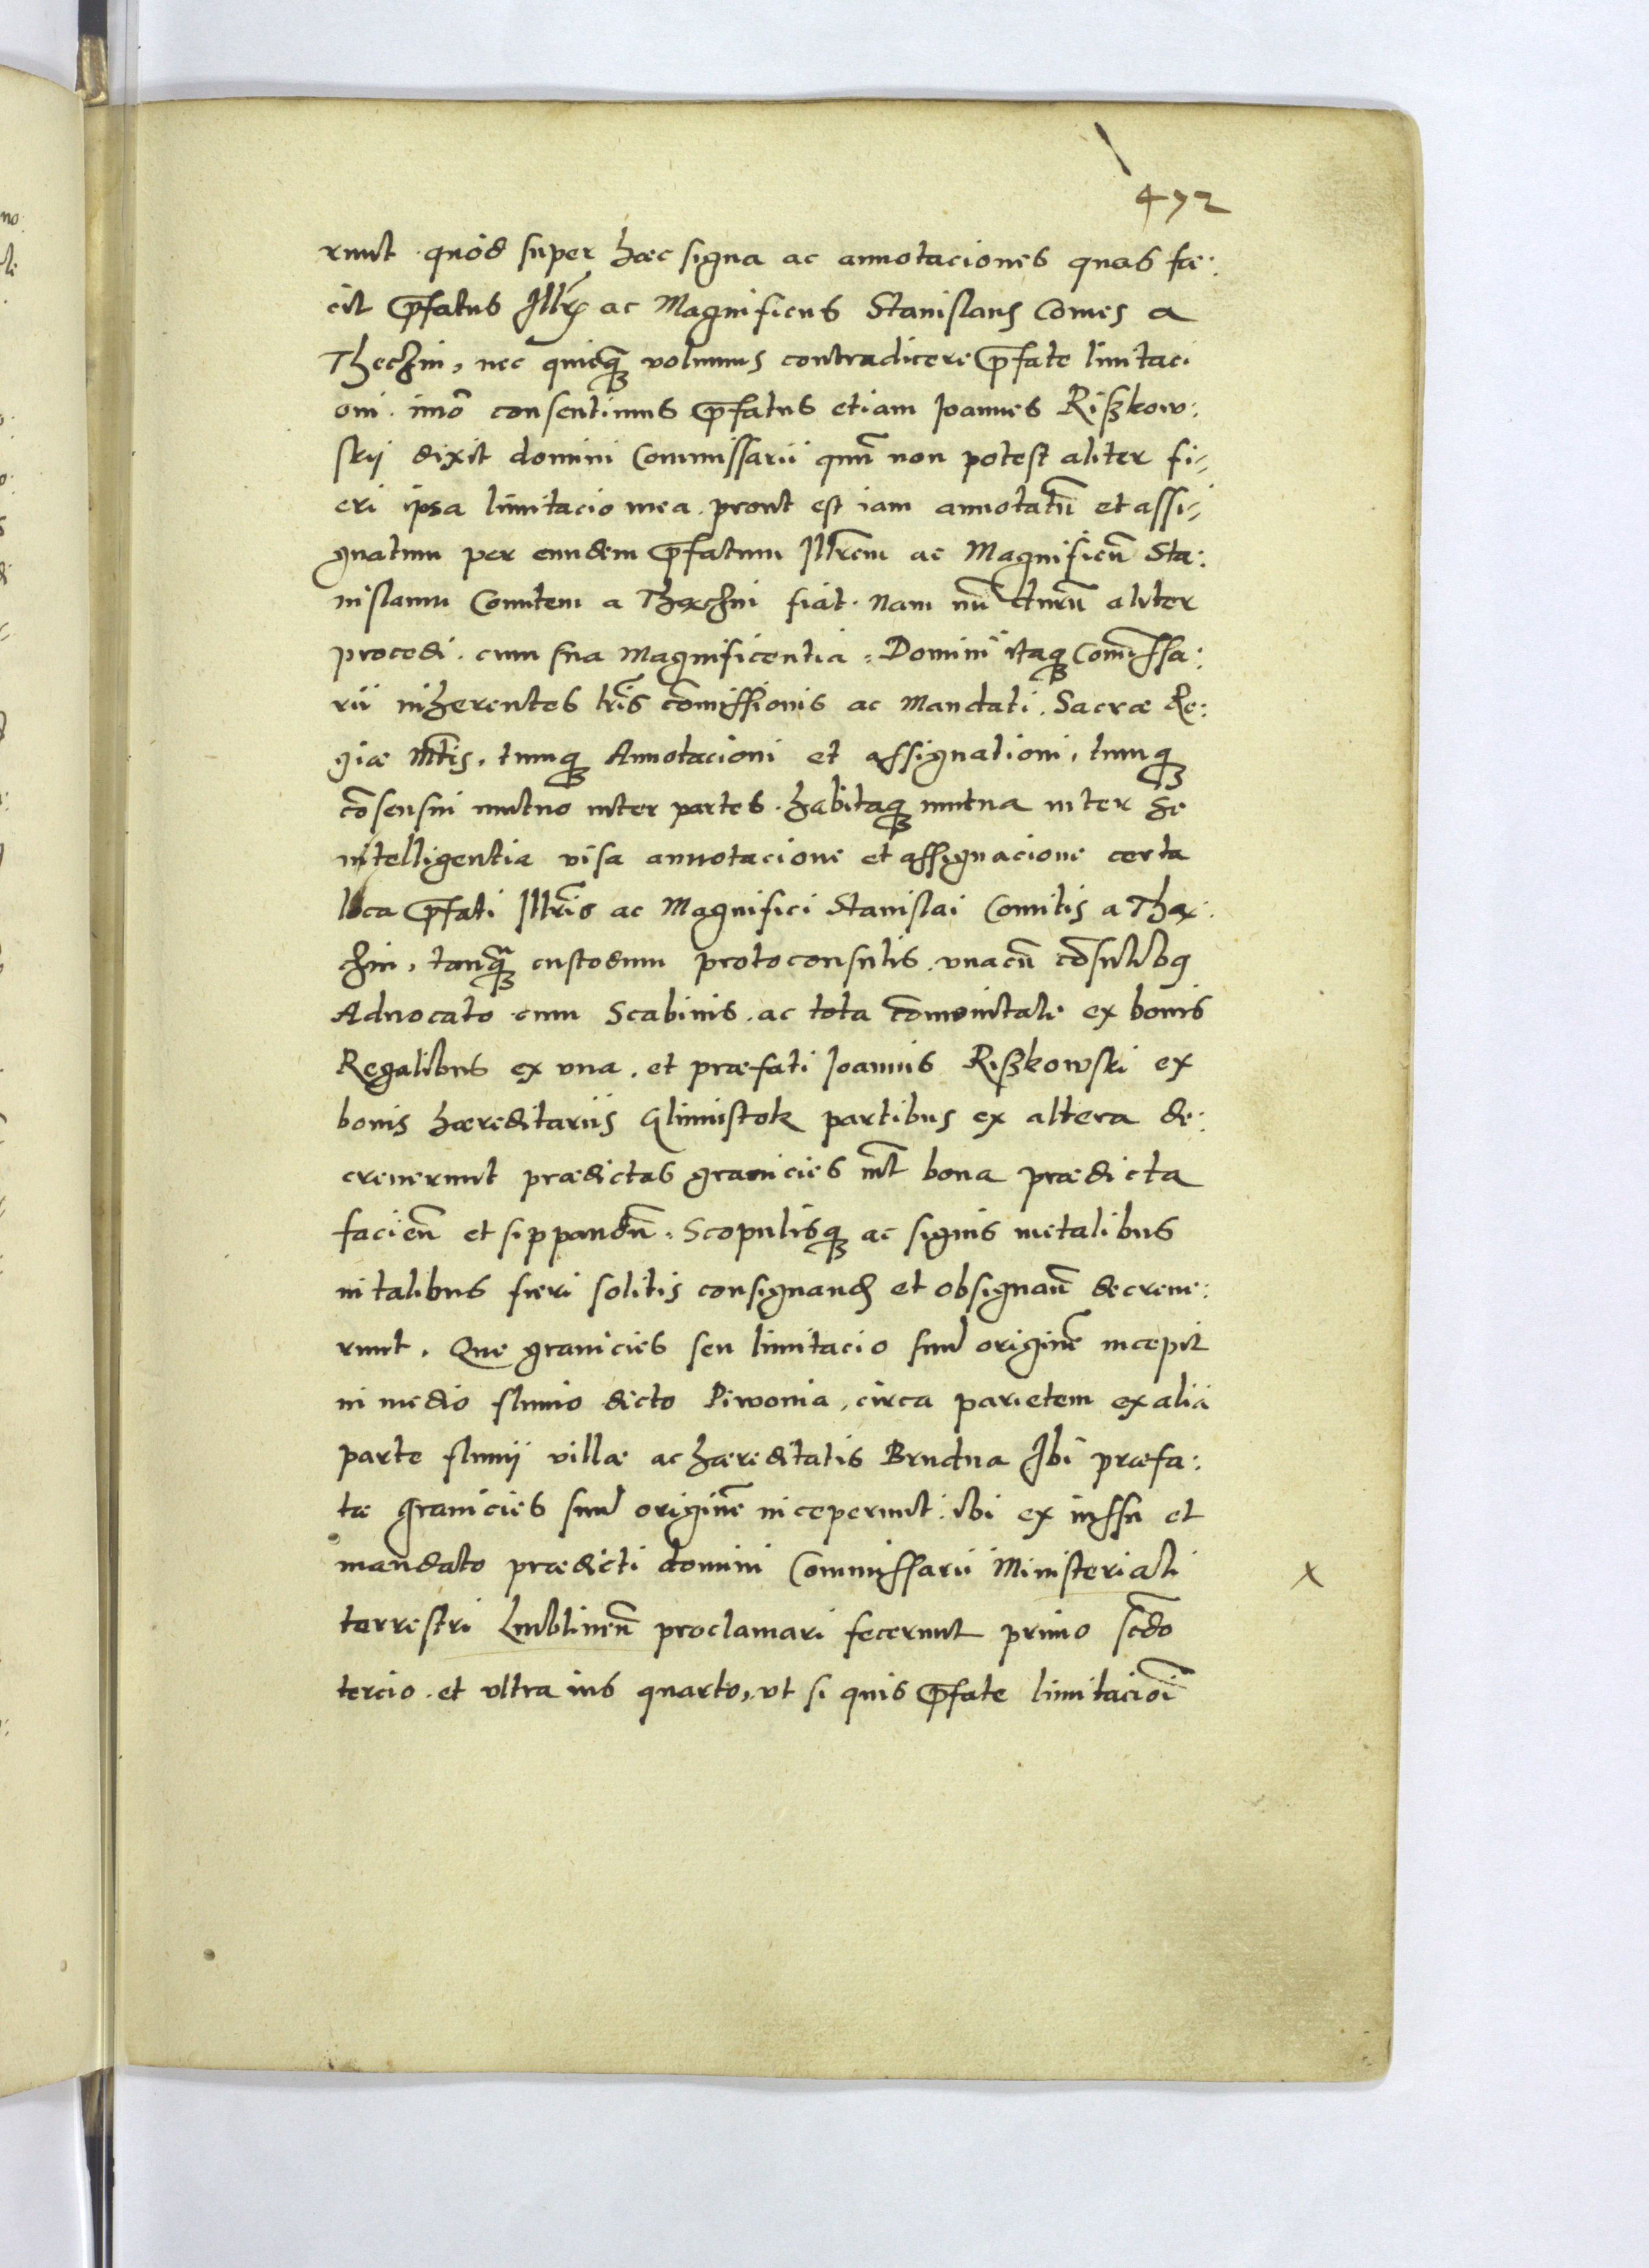 472
runt quòd super hæc signa ac annotaciones quas fæ:
cit p̄fatus Illr̄s ac Magnificus Stanislaus Comes a
Thęczin, nec quicq̄ꝫ volumus contradicere p̄fate limitaci
oni. imò consentimus p̄fatus etiam Joannes Rißkow:
skÿ dixit domini Commissarii qm̄ non potest aliter fi-
eri ipsa limitacio mea. prout est iam annotatū et assi-
gnatum per eundem p̄fatum Illr̄em ac Magnificū Sta:
nislaum Comitem a Thęczin fiat. Nam aliter
procedi. cum sua Magnificentia. Domini itaqꝫ Comissa:
rii inherentes lr̄is com̄issionis ac Mandati. Sacræ Re:
giæ Mtis. tumqꝫ Annotacioni et assignationi, tumqꝫ
cōsensui mutuo inter partes. habitaqꝫ mutua inter se
intelligentia visa annotacione et assignacione certa
loca p̄fati Illr̄is ac Magnifici Stanislai Comitis a Thęx:
czin, tanq̄ꝫ custodum protoconsulis. vnacū cōsulibꝯ
Aduocato cum Scabinis. ac tota com̄unitate ex bonis
Regalibus ex vna. et præfati Joannis Rißkowski ex
bonis hæreditariis Glinnistok partibus ex altera de:
creuerunt prædictas granicies int̄ bona prædicta
faciēn et sippandn̄. Scopulisqꝫ ac signis metalibus
in talibus fieri solitis consignand et obsignan̄ decreue:
runt. Que granicies seu limitacio suā originē incepit
in medio fluuio dicto Piwonia, circa parietem ex alia
parte fluuÿ villæ ac hæreditatis Brudna Ibi præfa:
tæ granicies suā originē inceperunt. ibi ex iussu et
mandato prædicti domini Commissarii Ministeriali
x
terrestri Lublinen̄ proclamari fecerunt primo scdo
tercio. et vltra ius quarto, vt si quis p̄fate limitacioī